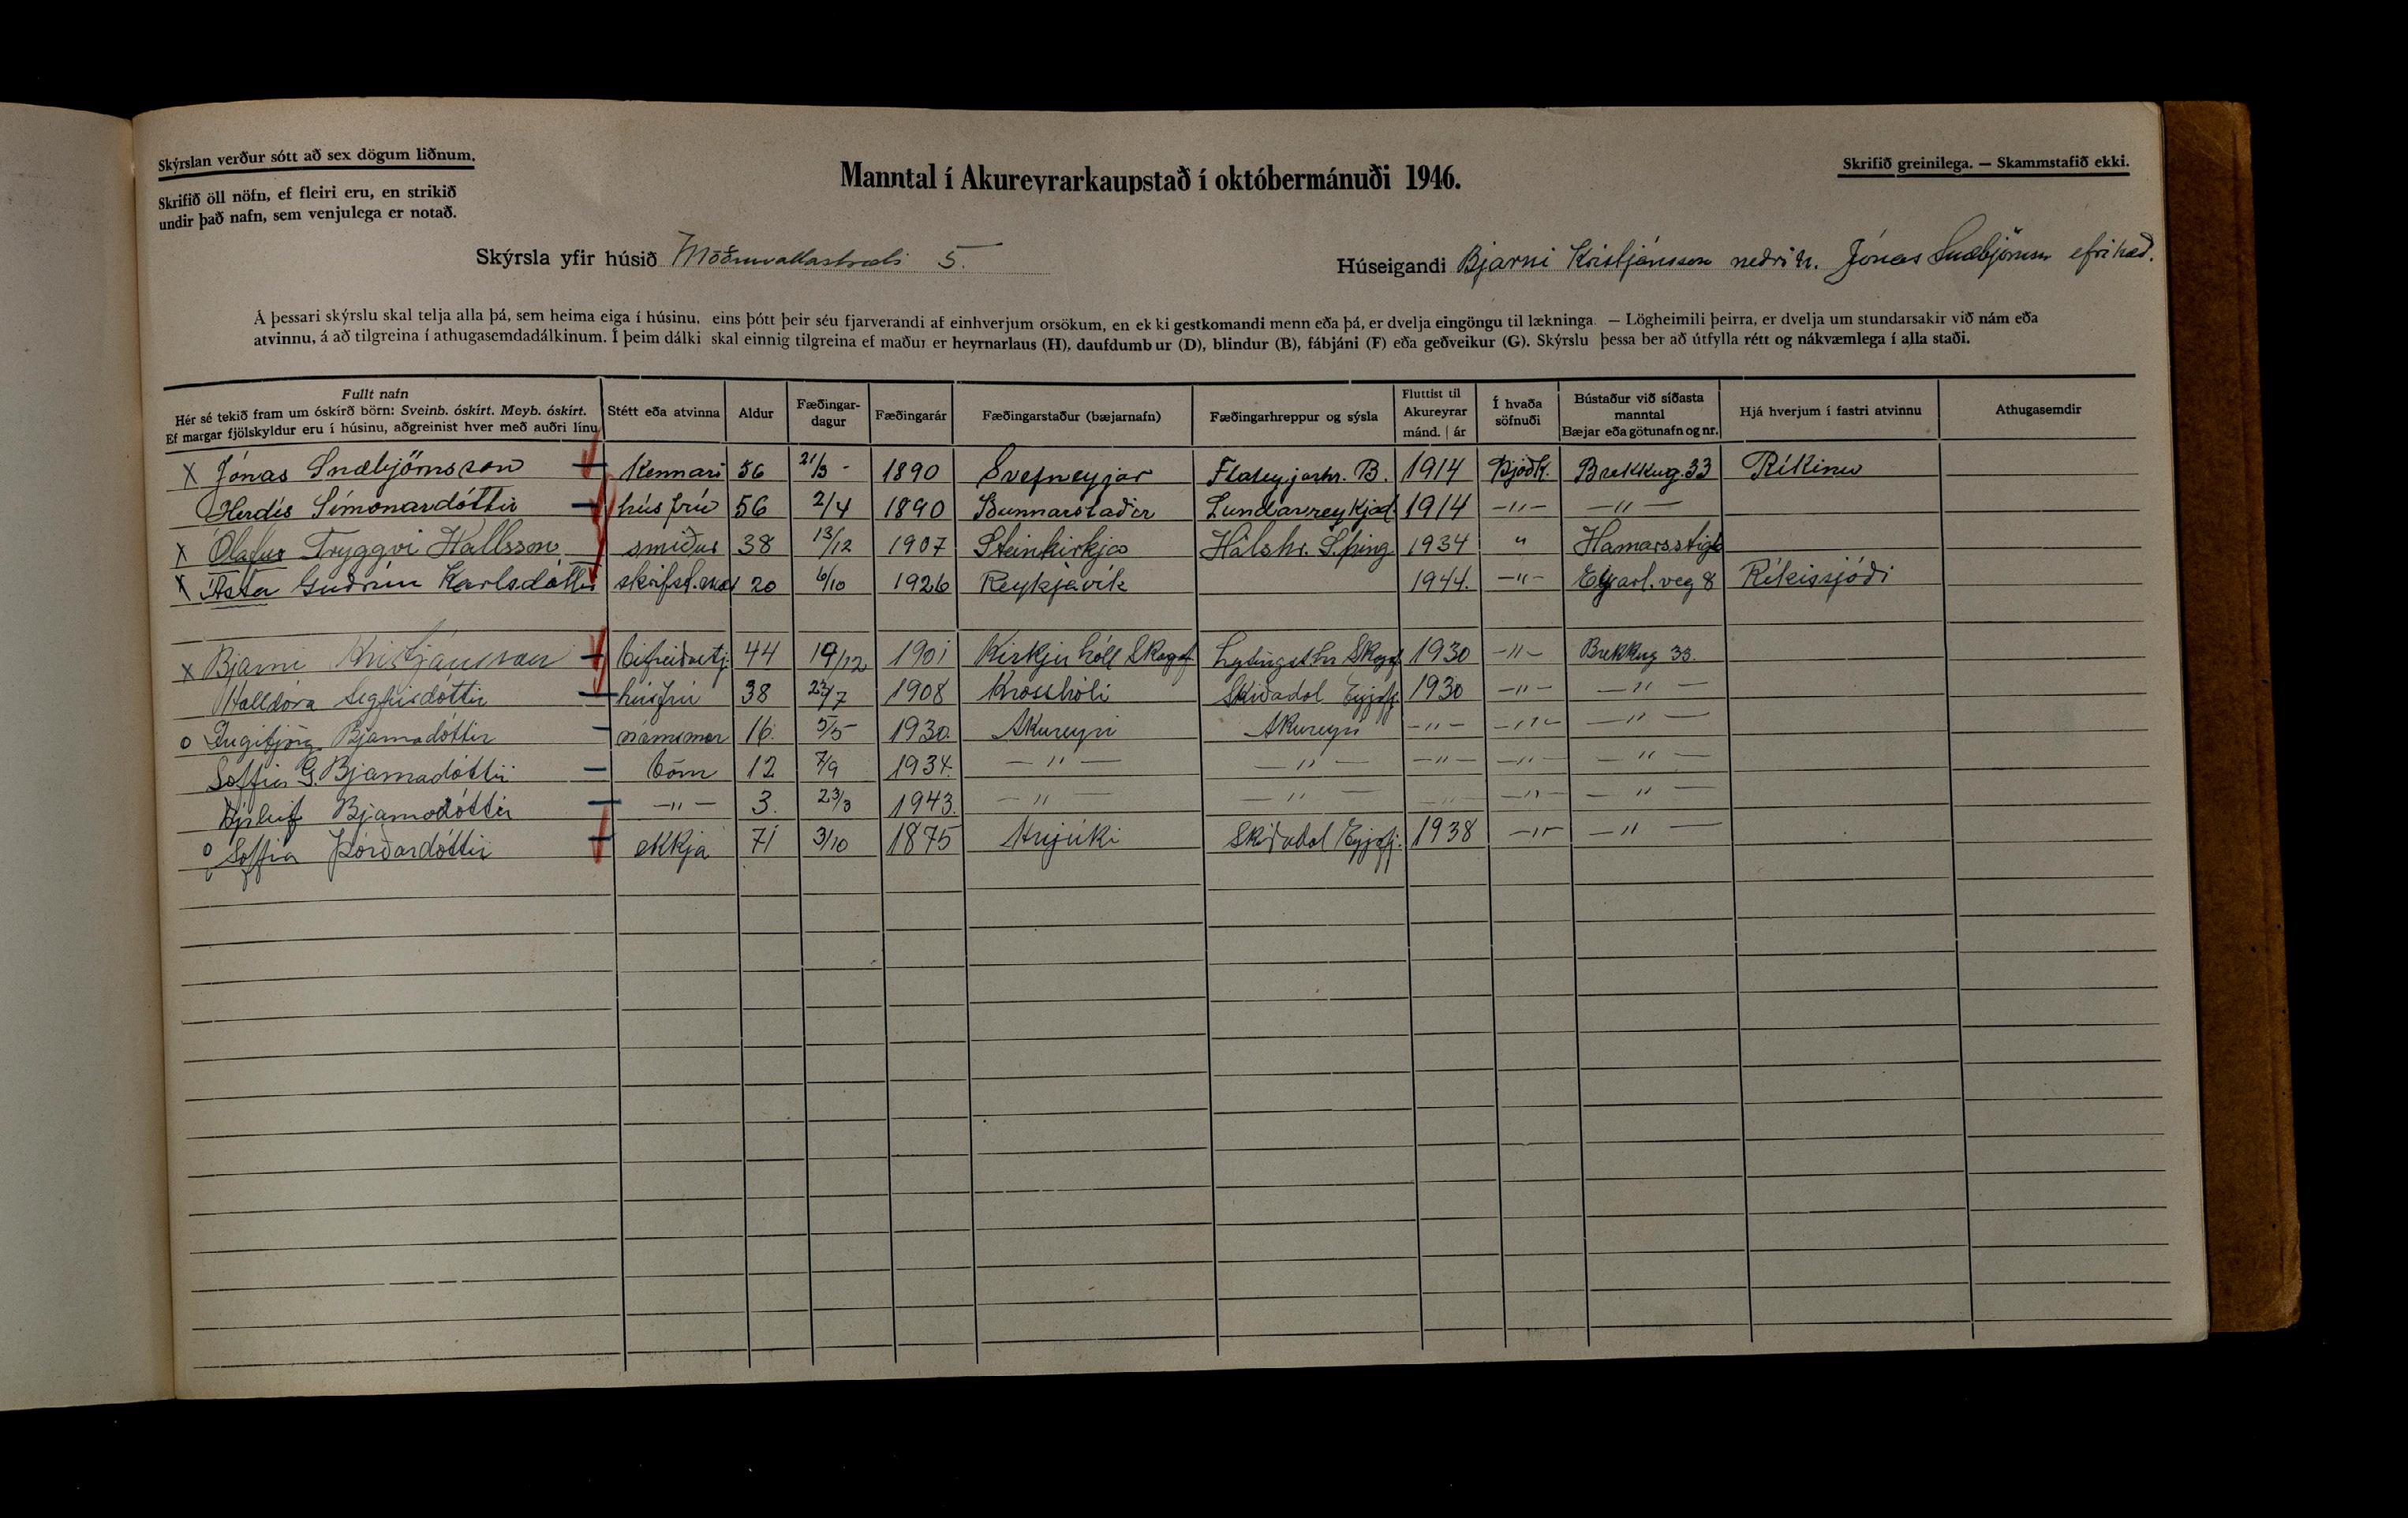 Skýrslan verður sótt að sex dögum liðnum.
Skrifið öll nöfn, ef fleiri eru, en strikið
undir það nafn, sem venjulega er notað.
Manntal í Akureyrarkaupstað í októbermánuði 1946.
Skrifið greinilega. — Skammstafið ekki.
Skýrsla yfir húsið Möðruvallastræti 5.
Húseigandi Bjarni Kristjánsson neðri h. Jónas Snæbjörnsson efri hæð.
Á þessari skýrslu skal telja alla þá, sem heima eiga í húsinu, eins þótt þeir séu fjarverandi af einhverjum orsökum, en ekki gestkomandi menn eða þá, er dvelja eingöngu til lækninga. — Lögheimili þeirra, er dvelja um stundarsakir við nám eða
atvinnu, á að tilgreina í athugasemdadálkinum. Í þeim dálki skal einnig tilgreina ef maður er heyrnarlaus (H), daufdumbur (D), blindur (B), fábjáni (F) eða geðveikur (G). Skýrslu þessa ber að útfylla rétt og nákvæmlega í alla staði.
Fullt nafn
Hér sé tekið fram um óskírð börn: Sveinb. óskírt. Meyb. óskírt.
Ef margar fjölskyldur eru í húsinu, aðgreinist hver með auðri línu
Stétt eða atvinna
Aldur
Fæðingar-
dagur
Fæðingarár
Fæðingarstaður (bæjarnafn)
Fæðingarhreppur og sýsla
Fluttist til
Akureyrar
mánd. | ár
Í hvaða
söfnuði
Bústaður við síðasta
manntal
Bæjar eða götunafn og nr.
Hjá hverjum í fastri atvinnu
Athugasemdir
x Jónas Snæbjörnsson Kennari 56 21/3 - 1890 Svefneyjar Flateyjarhr. B. 1914 Þjóðk. Brekkug. 33 Ríkinu
Herdís Símonardóttir húsfrú 56 2/4 1890 Bunnarstaðir Lundarreykjad. 1914 -"- -"-
x Ólafur Tryggvi Hallsson smiður 38 13/12 1907 Steinkirkja Hálshr. S.þing 1934 " Hamarsstíg
x Ásta Guðrún Karlsdóttir skrifst. 20 6/10 1926 Reykjavík 1944. -"- Eyrarl. veg 8 Ríkissjóði
x Bjarni Kristjánsson bifreiðastj. 44 19/12 1901 Kirkjuhóll Skagaf Lýtingst.hr Skagaf 1930 -"- Brekkug 33.
Halldóra Sigfúsdóttir húsfrú 38 22/7 1908 Krosshóli Skíðadal Eyjafj. 1930 -"- -"-
o Ingibjörg Bjarnadóttir námsmær 16. 5/5 1930. Akureyri Akureyri -"- -"- -"-
Soffía G. Bjarnadóttir börn 12 7/9 1934. -"- -"- -"- -"- -"-
Bjarnadóttir -"- 3. 23/3 1943. -"- -"- -"- -"- -"-
o Soffía Þórðardóttir ekkja 71 3/10 1875 Hnjúki Skíðadal Eyjafj. 1938 -"- -"-